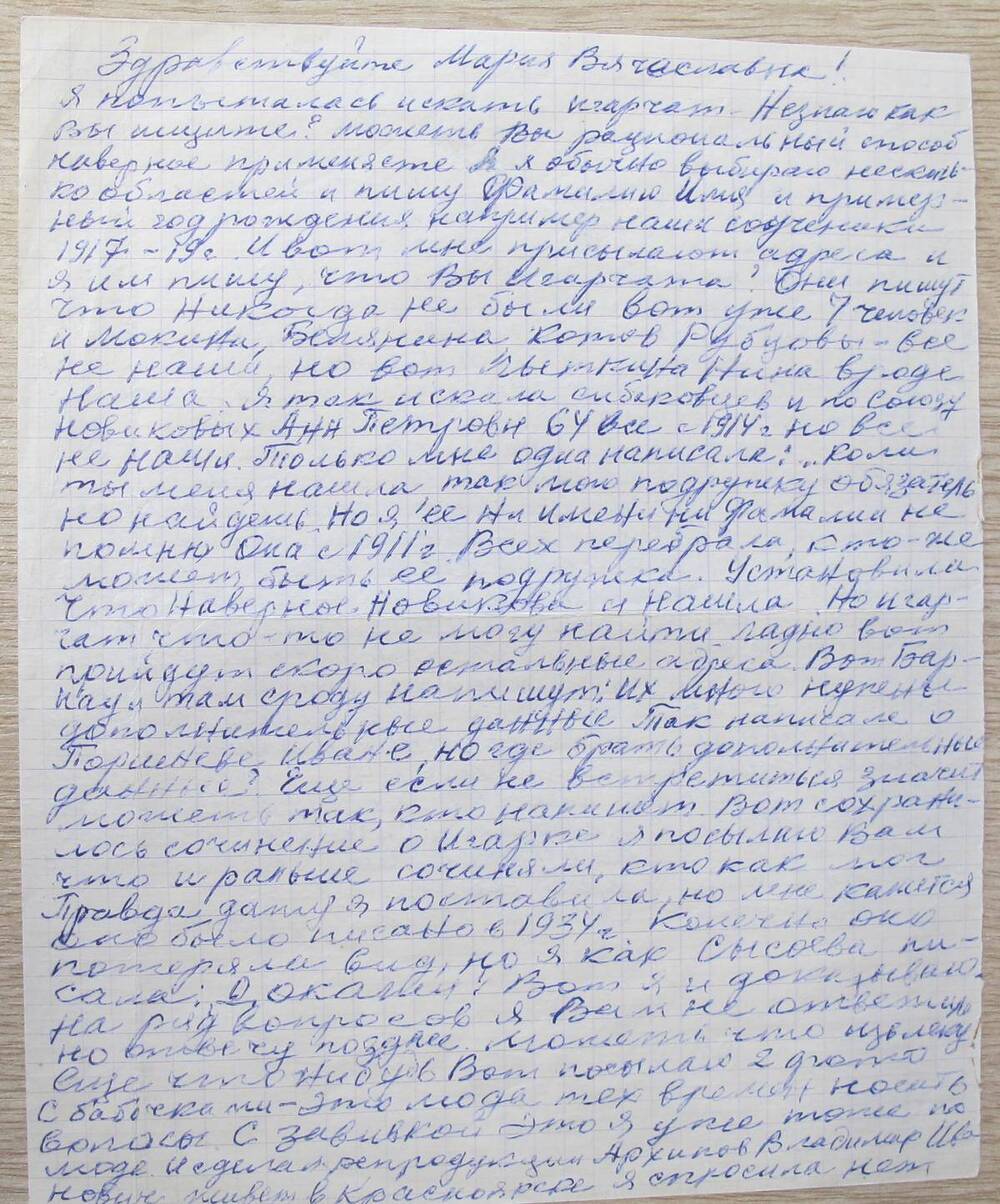 Здравствуйте Мария Вячаславна!
Я попыталась искать игарчат. Незнаю как
Вы ищите? может Вы рациональный способ
наверное применяете а я обычно выбираю несколь-
ко областей и пишу Фамилию Имя и пример-
ный год рождения например наши соученики
1917-19г. И вот мне присылают адреса и
я им пишу, что Вы Игарчата? Они пишут
что никогда не были вот уже 7 человек
и Мокини, Белянина Котов Рубцовы-все
не наши, но вот Лыткина Нина вроде
наша. Я так искала сибиковцев и по Союзу
Новиковых Анн Петровн 64 все с 1914г но все
не наши. Только мне одна написала: "Коли
ты меня нашла так мою подружку обязатель
но найдешь. Но я ее ни имени ни фамалии не
помню Она с 1911г. Всех перебрала, кто-же
может быть ее подружка. Установила
что наверное Новикова и нашла. Но игар-
чат что-то не могу найти ладно вот
прийдут скоро остальные адреса. Вот Бар-
наул там сразу напишут: их много нужены
дополнительные данные Так написале о
Поршневе Иване, но где брать дополнительные
данные? Еще если не встретиться значит
может так, кто напишет. Вот сохрани-
лось сочинение о Игарке я посылаю Вам
что и раньше сочиняли, кто как мог
Правда дату я поставила, но мне кажется
оно было писано в 1934г Конечно оно
потеряла вид, но я как Сысоева пи-
сала: Докажи! Вот я и доказываю
на ряд вопросов я Вам не ответила
но отвечу позднее. может что извлеку!
Еще что нибудь Вот посылаю 2 фото
С бабочками-это мода тех времен носить
волосы С завивкой это я уже тоже по
моде и сделал репродукции Архипов Владимир Ива
нович живет в Красноярске я спросила нет